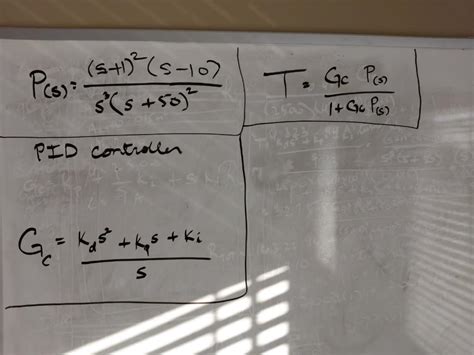 P(s) = (s+1)² (s-10) / s³(s+50)²
T = Gc P(s) / 1+Gc P(s)
PID controller
Gc = Kds² + Kps + Ki / s